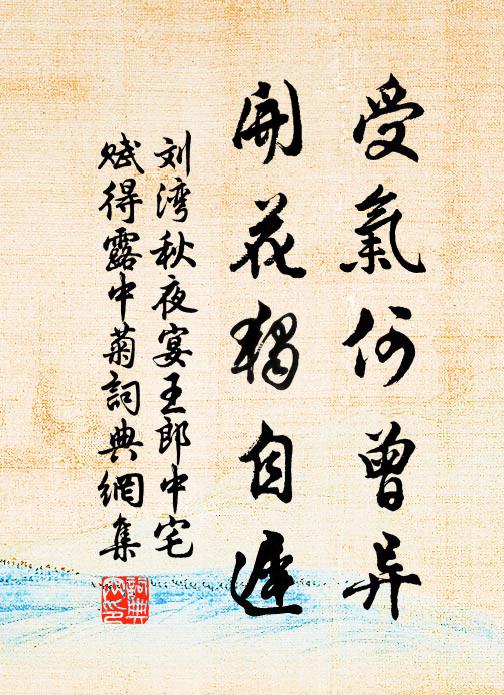 受氣何曾异
開花獨自遲
刘湾秋夜宴王郎中宅
赋得露中菊詞典網集